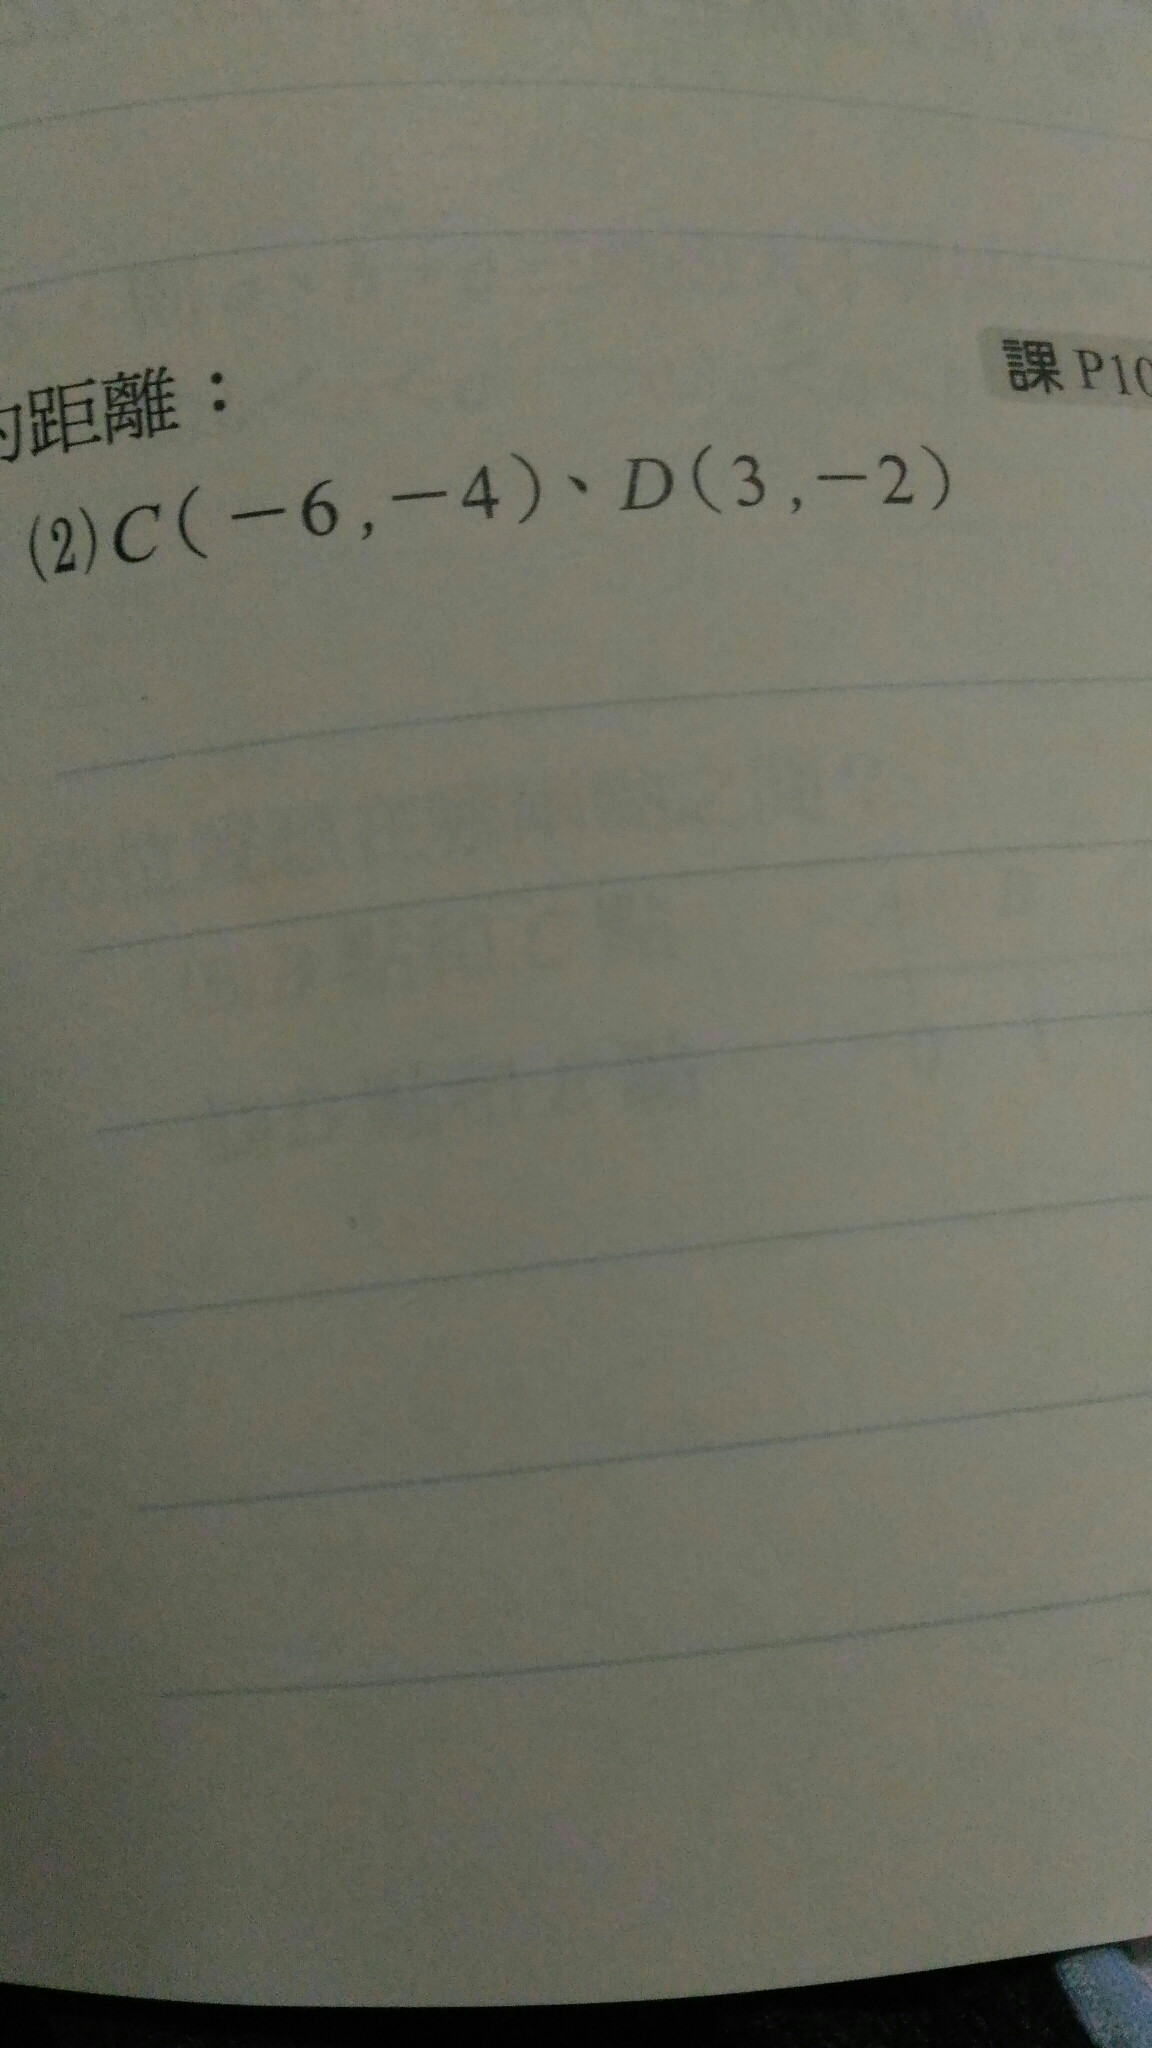 的距離：
課 P10
(2) C(－6,－4)、D(3,－2)